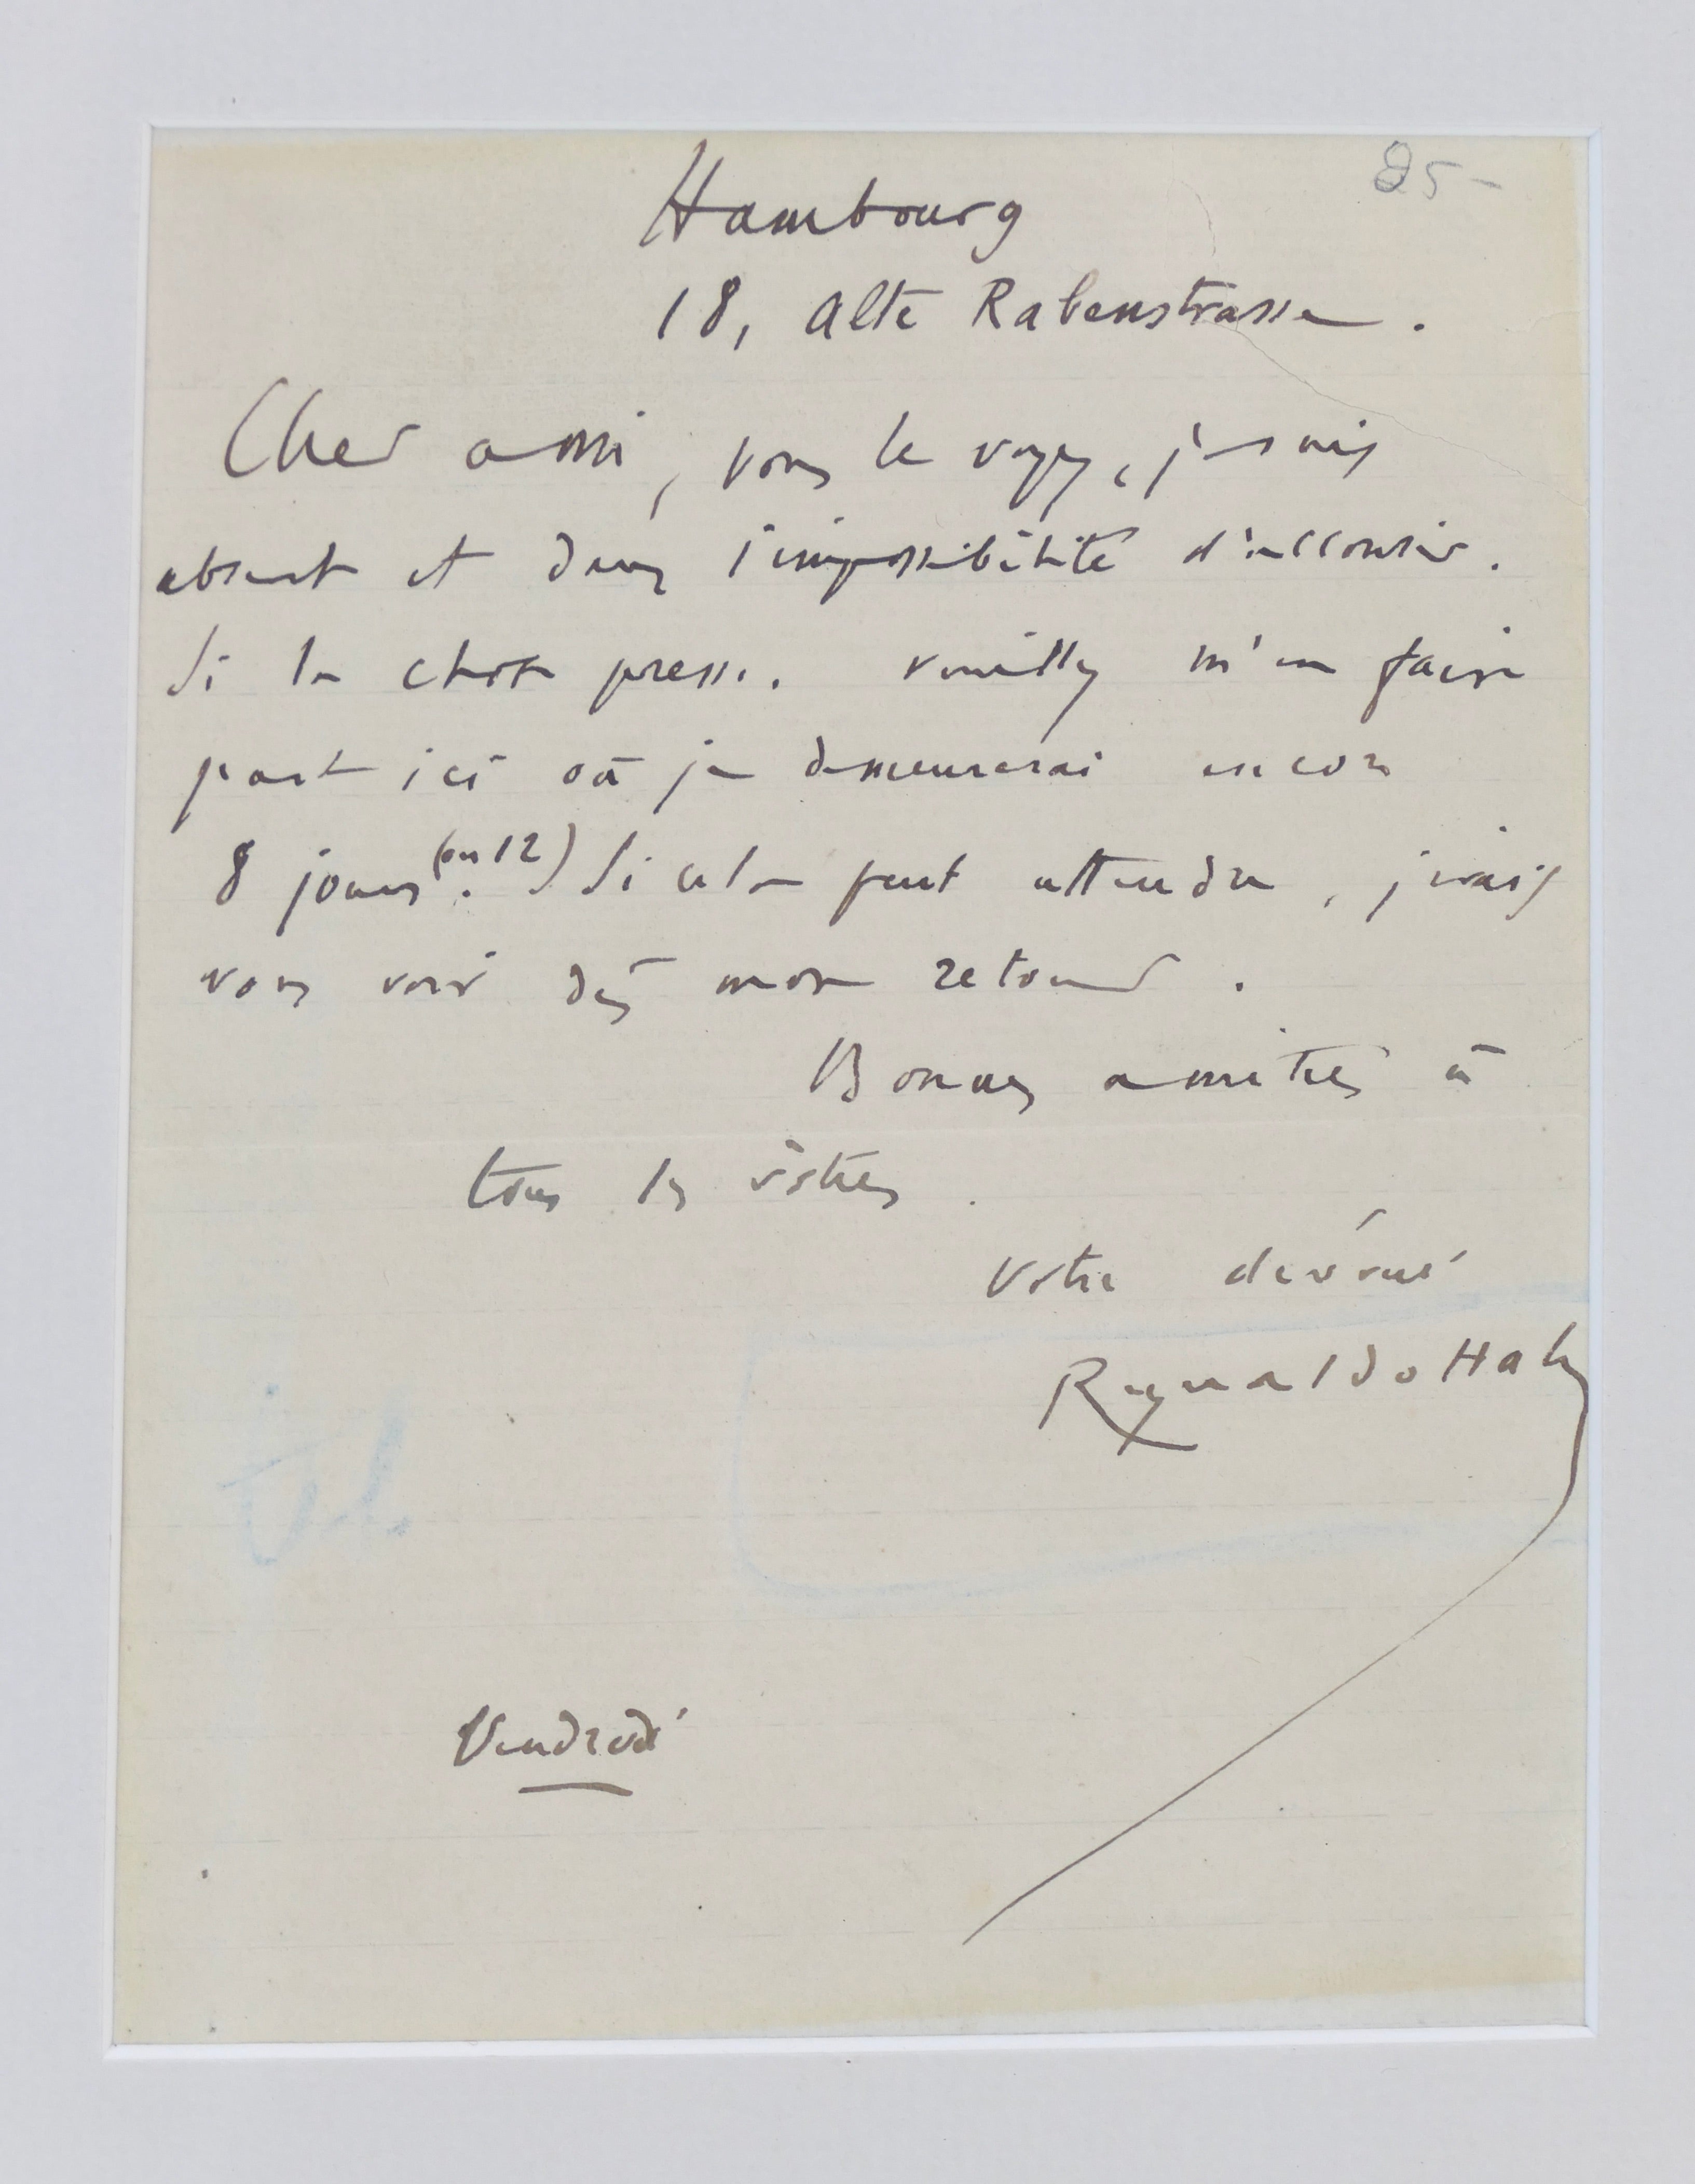 25-
Hambourg
18, Alte Rabenstrasse.
Cher ami, vous le voyez, je suis
absent et dans l'impossibilité d'accourir.
Si la chose presse, veuillez m'en faire
part ici où je demeurerai encore
8 jours (ou 12). Si cela peut attendre, j'irais
vous voir dès mon retour.
Bonnes amitiés à
tous les vôtres.
Votre dévoué
Reynaldo Hahn
Vendredi